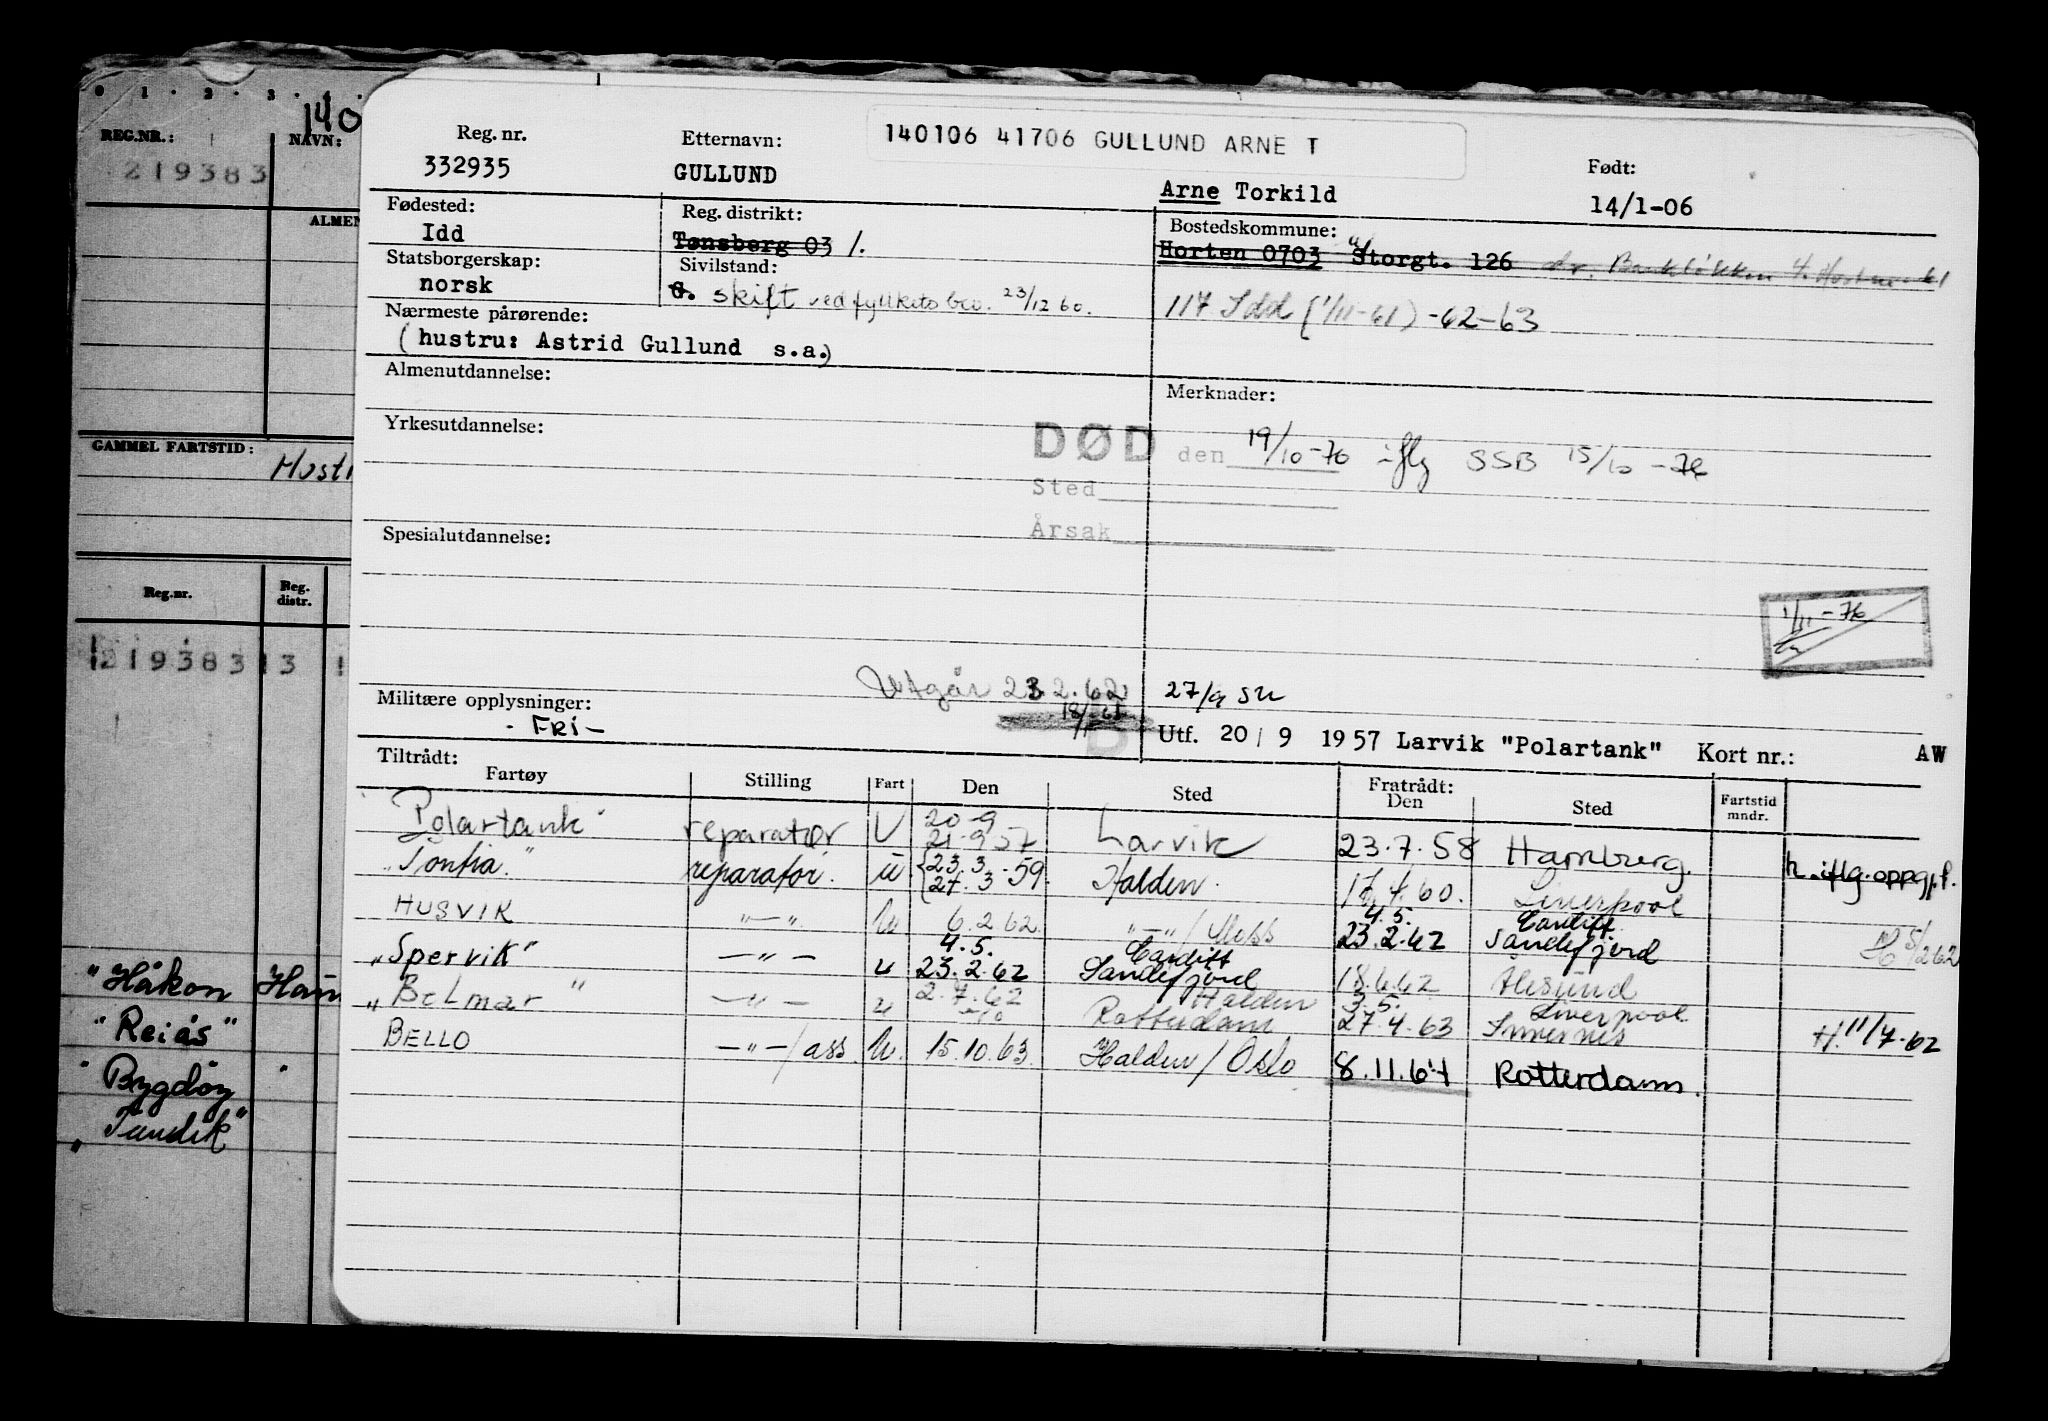 0 1 . 2 . 3 .
140
REG.NR.: NAVN:
219383
ALMEN
GAMMEL FARTSTID:
Reg.nr. Reg. distr.
219383 13
"Håkon
"Reiås"
"Bygdøy
140106 41706 GULLUND ARNE T
Reg. nr. Etternavn: Født:
332935 GULLUND Arne Torkild 14/1-06
Fødested: Reg. distrikt: Bostedskommune:
Idd Tønsberg 03 /. Horten 0703 Storgt. 126
Statsborgerskap: Sivilstand:
norsk G. skift ved fylkets bev. 23/12 60. 117 Idd (1/11-61) -62-63
Nærmeste pårørende:
(hustru: Astrid Gullund s.a.)
Almenutdannelse: Merknader:
Yrkesutdannelse:
DØD den 19/10-76 iflg SSB 15/10-76
Sted
Årsak
Spesialutdannelse:
1/11-76
Utgår 23.2.62 27/9 su
Militære opplysninger:
- FRI -
Utf. 20/9 1957 Larvik "Polartank" Kort nr.: AW
Tiltrådt: Fratrådt:
Fartøy Stilling Fart Den Sted Den Sted Fartstid mndr.
Polartank reparatør U 20-9 21-9 57 Larvik 23.7.58 Hamburg h. iflg. oppg. f.
"Tontia." reparatør. u {23.3. 27.3-59. Halden. 60. Liverpool
HUSVIK —"— U 6.2.62. —"— / Mess 4.5. 23.2.62 Cardiff Sandefjord
"Spervik" —"— u 4.5. 23.2.62 Cardiff Sandefjord 18.6.62 Ålesund
"Belmar" —"— u 2.7.62 Halden Rotterdam 3.5. 27.4.63 Liverpool H. 11/7-62
BELLO —"—/ass. U. 15.10.63. Halden / Oslo 8.11.64 Rotterdam.